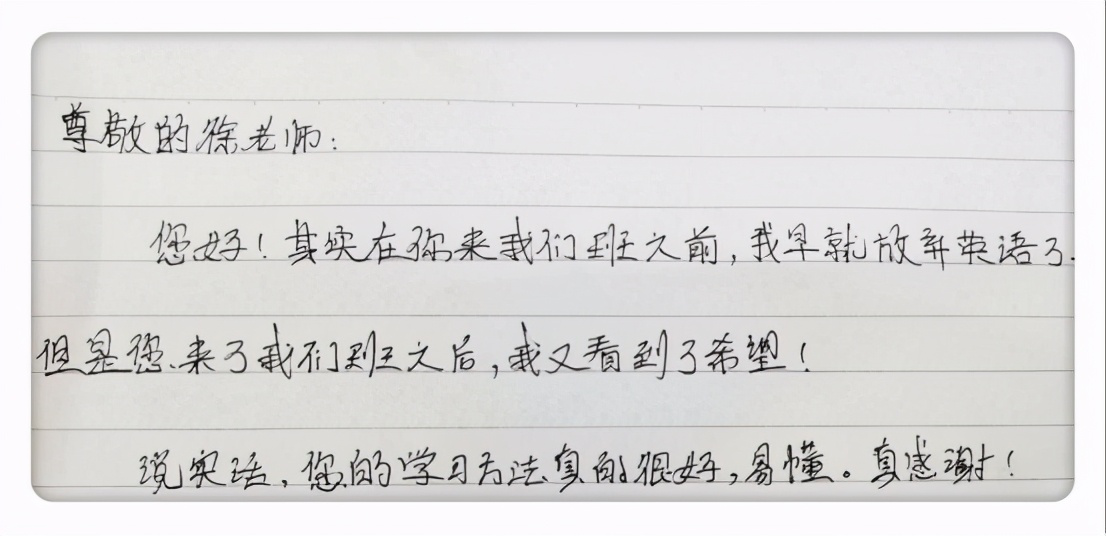 尊敬的徐老师：
您好！其实在你来我们班之前，我早就放弃英语了.
但是您来了我们班之后，我又看到了希望！
说实话，您的学习方法真的很好，易懂。真感谢！